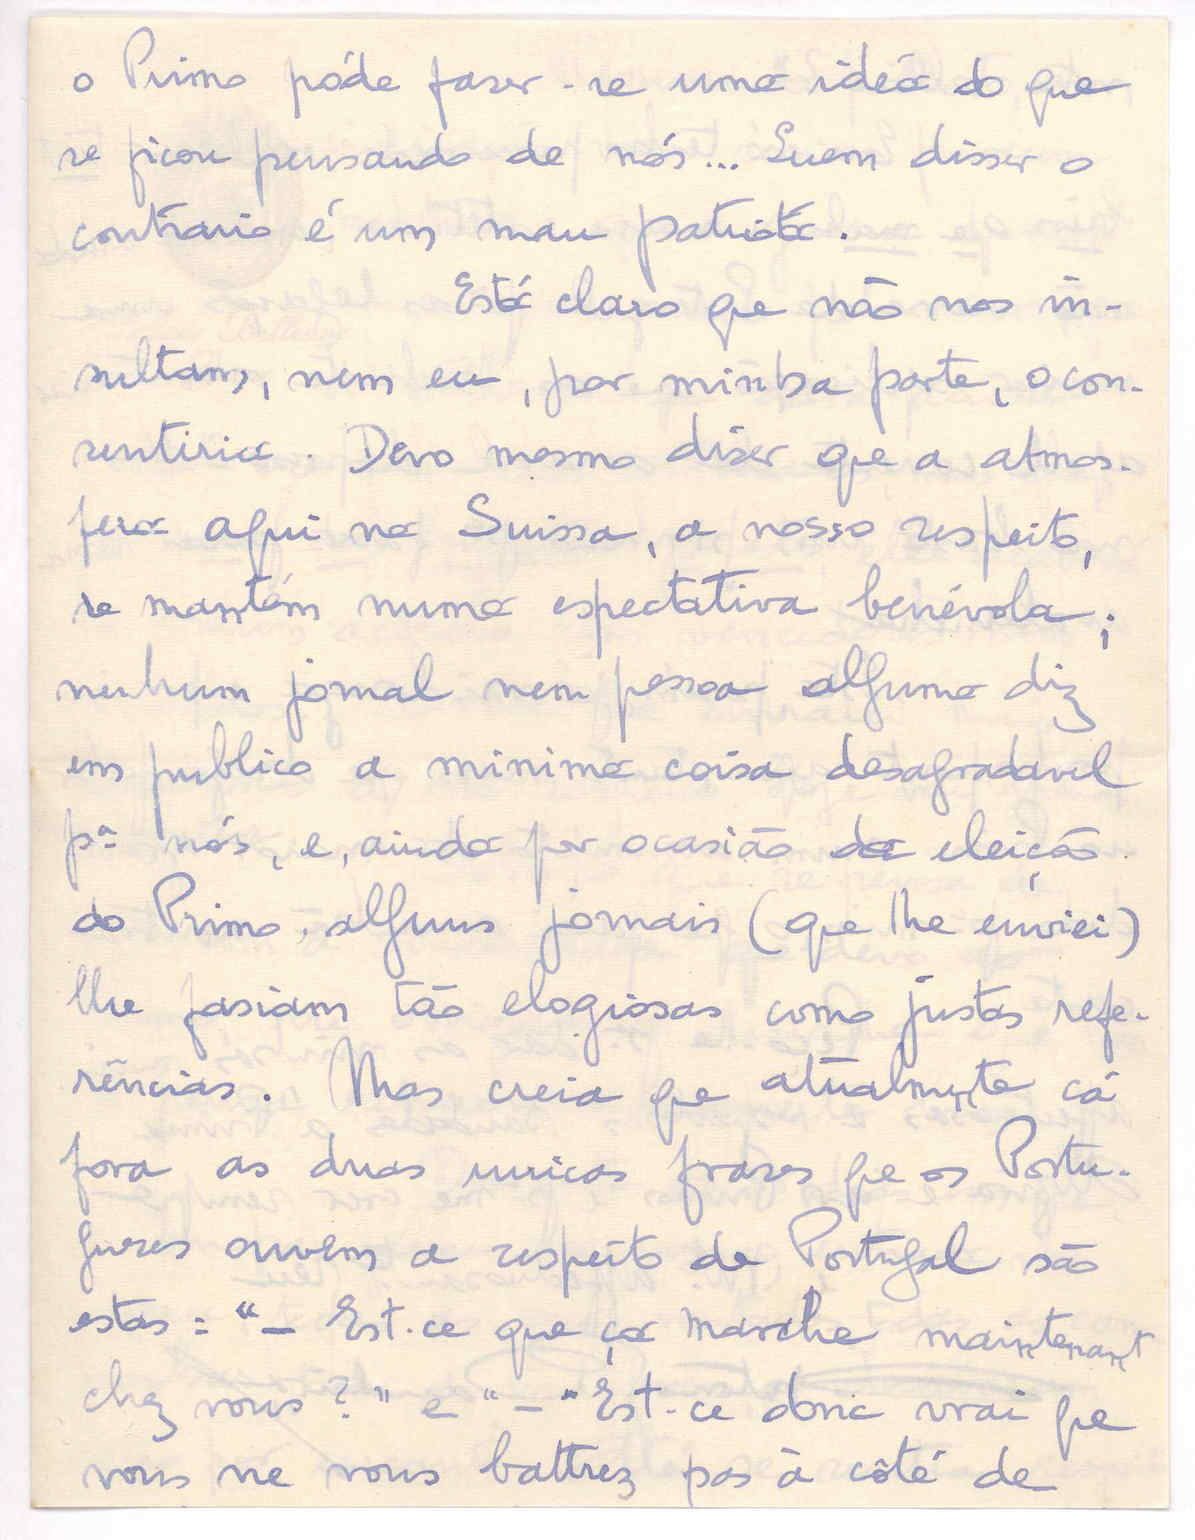 o Primo póde faser-se uma idéa do que
se ficou pensando de nós... Quem disser o
contrario é um mau patriota.
Está claro que não nos in-
sultam, nem eu, por minha parte, o con-
sentiria. Devo mesmo diser que a atmos-
fera aqui na Suissa, a nosso respeito,
se mantém numa espectativa benévola;
nenhum jornal nem pessoa alguma diz
em publico a minima coisa desagradavel
pª nós, e, ainda por ocasião da eleição
do Primo, alguns jornais (que lhe enviei)
lhe fasiam tão elogiosas como justas refe-
rências. Mas creia que atualmente cá
fora as duas unicas frases que os Portu-
gueses ouvem a respeito de Portugal são
estas: "— Est-ce que ça marche maintenant
chez vous?" e "—"Est-ce donc vrai que
vous ne vous battrez pas à côté de